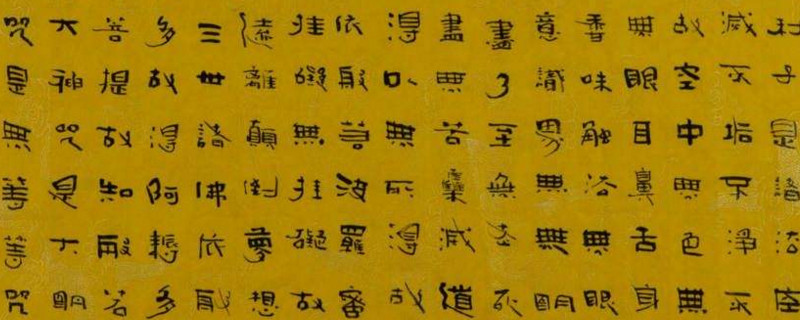 子是諸法空
減不垢不淨不
故空中無色無
無眼耳鼻舌身
香味觸法無眼
意識界無無明
盡乃至無老死
盡無苦集減道
得以無所得故
依般若波羅蜜
挂礙無挂礙故
遠離顛倒夢想
三世諸佛依般
多故得阿耨多
菩提故知般若
大神咒是大明
咒是無等等咒